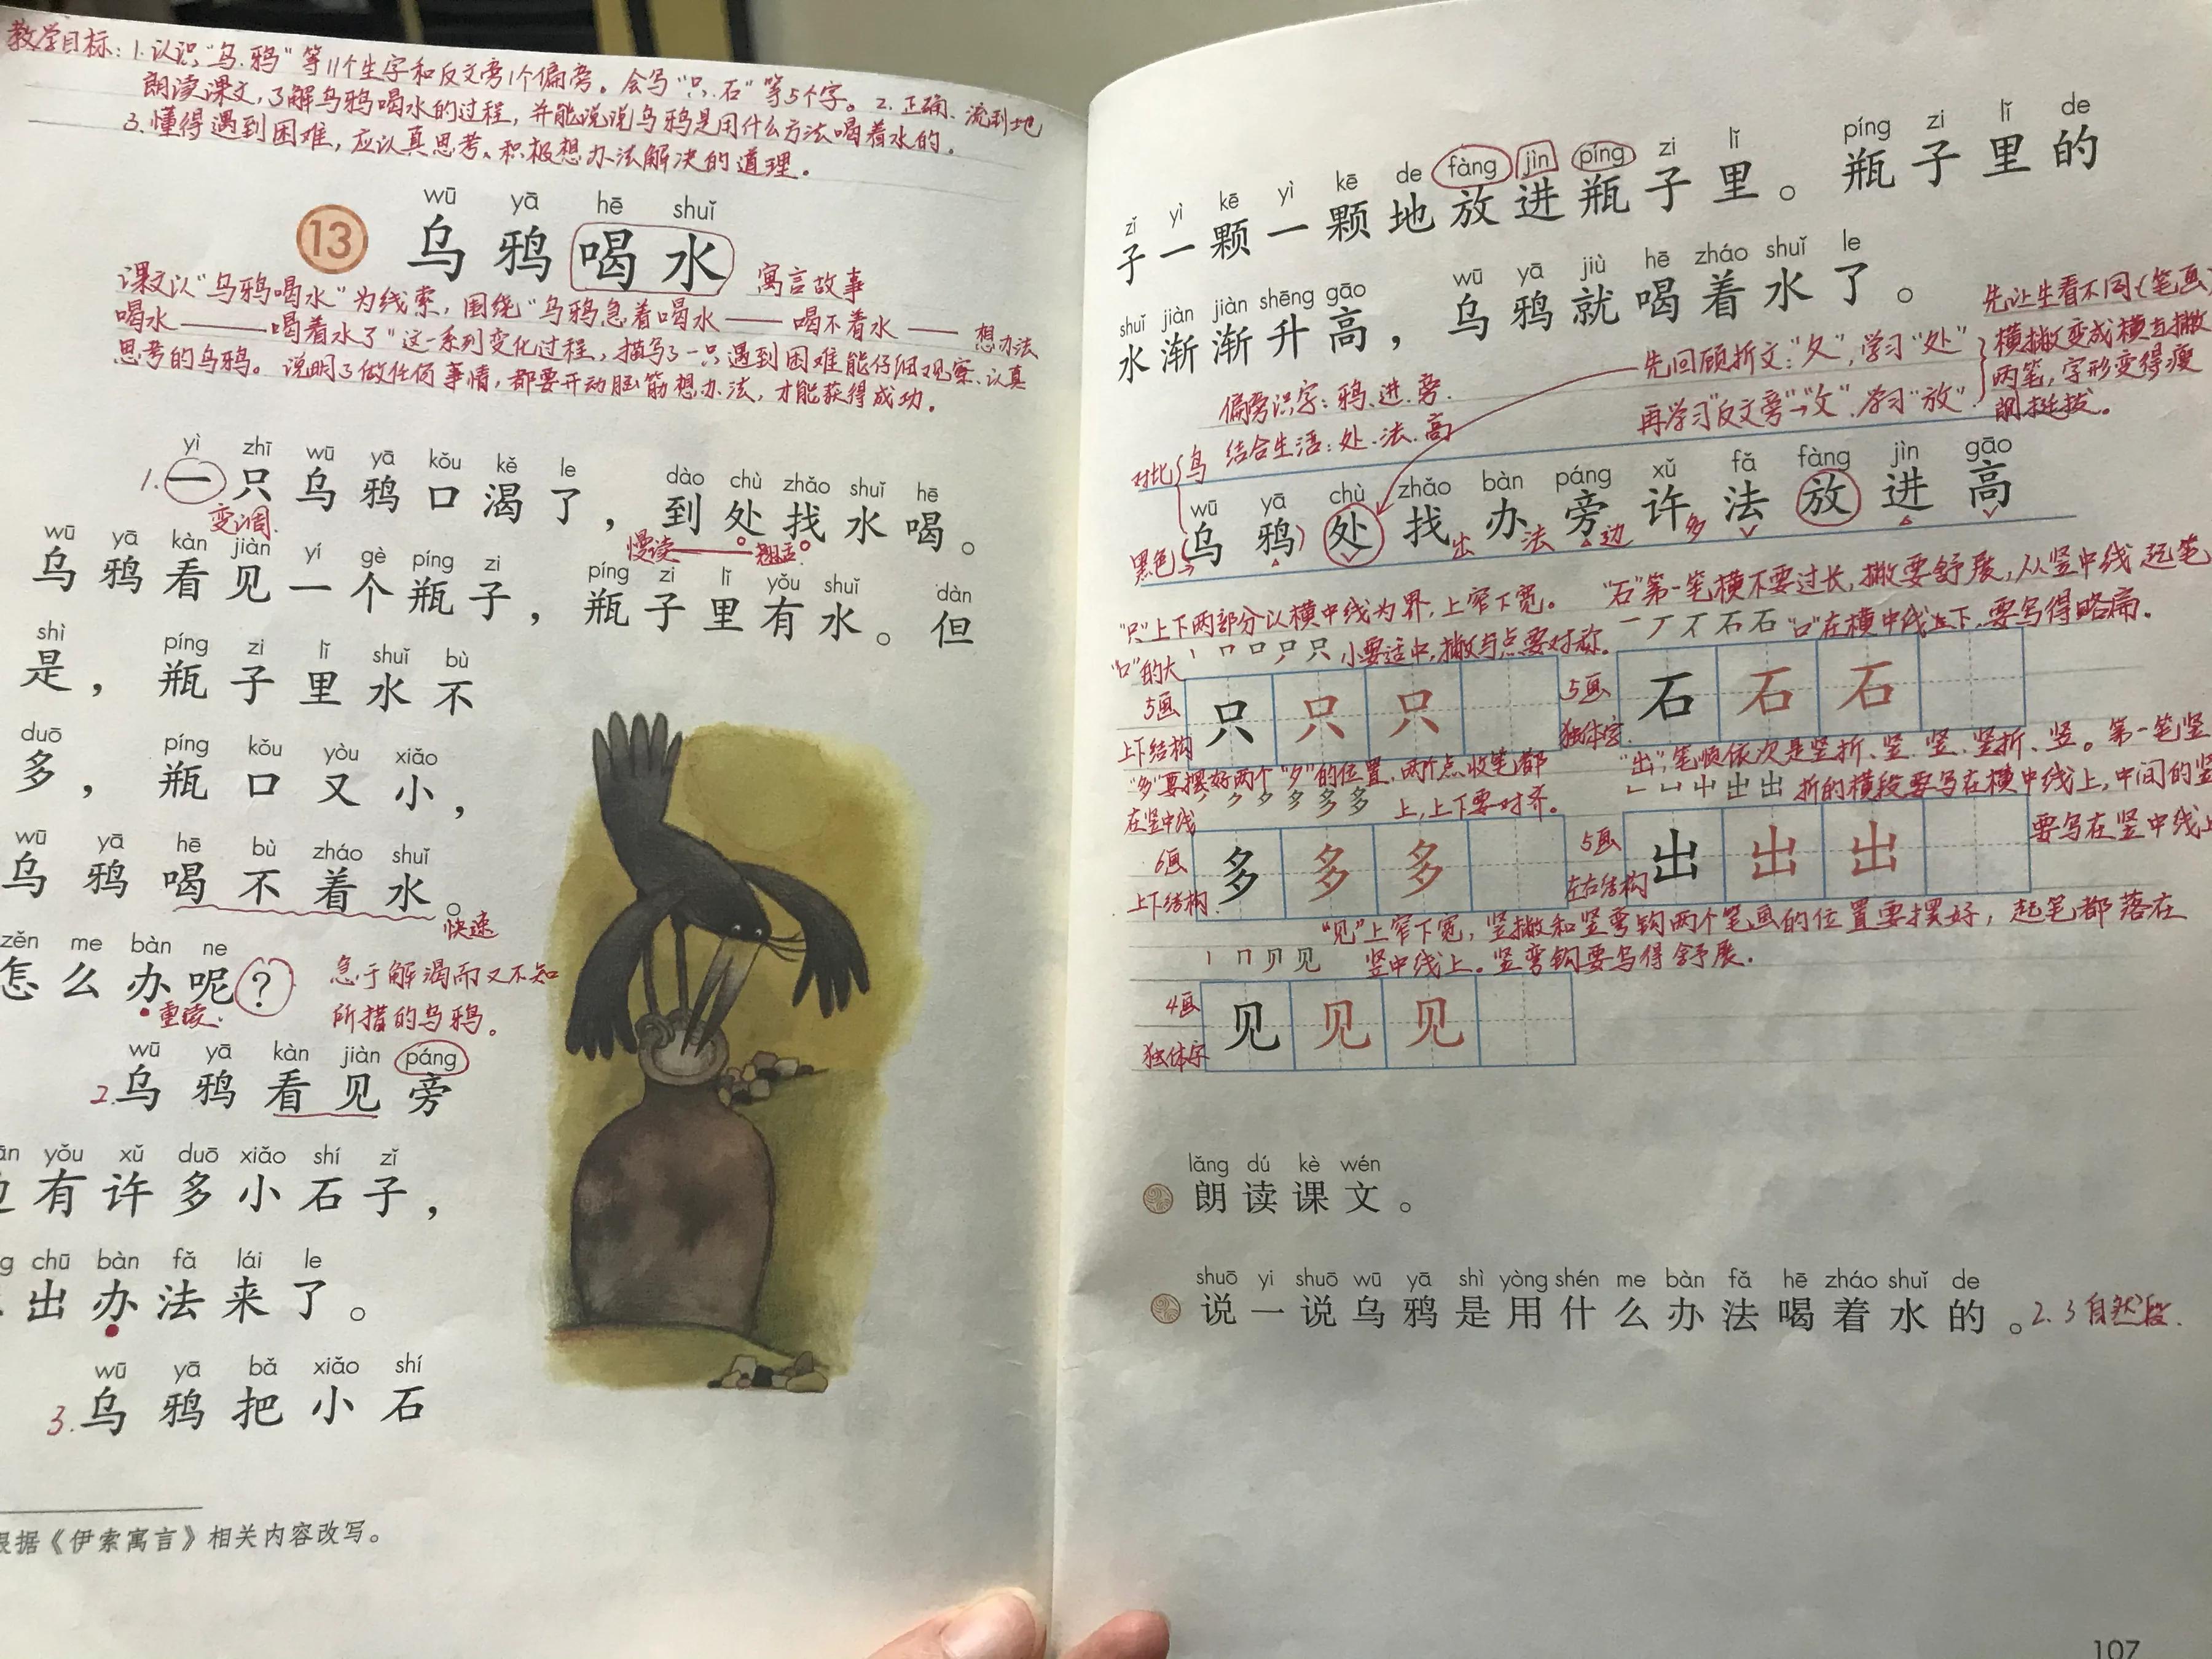 教学目标：1.认识“乌、鸦”等11个生字和反文旁1个偏旁。会写“只、石”等5个字。2.正确、流利地
朗读课文，了解乌鸦喝水的过程，并能说说乌鸦是用什么方法喝着水的。
3.懂得遇到困难，应认真思考、积极想办法解决的道理。
wū yā hē shuǐ
13 乌鸦喝水
寓言故事
课文以“乌鸦喝水”为线索，围绕“乌鸦急着喝水——喝不着水——想办法
喝水——喝着水了”这一系列变化过程，描写了一只遇到困难能仔细观察、认真
思考的乌鸦。说明了做任何事情，都要开动脑筋想办法，才能获得成功。
yì zhī wū yā kǒu kě le dào chù zhǎo shuǐ hē
1.一只乌鸦口渴了，到处找水喝。
变调 慢读 翘舌
wū yā kàn jiàn yí gè píng zi píng zi lǐ yǒu shuǐ dàn
乌鸦看见一个瓶子，瓶子里有水。但
shì píng zi lǐ shuǐ bù
是，瓶子里水不
duō píng kǒu yòu xiǎo
多，瓶口又小，
wū yā hē bù zháo shuǐ
乌鸦喝不着水。
快速
zěn me bàn ne
怎么办呢？
重读
急于解渴而又不知
所措的乌鸦。
wū yā kàn jiàn páng
2.乌鸦看见旁
yǒu xǔ duō xiǎo shí zǐ
有许多小石子，
chū bàn fǎ lái le
出办法来了。
wū yā bǎ xiǎo shí
3.乌鸦把小石
根据《伊索寓言》相关内容改写。
zǐ yì kē yì kē de fàng jìn píng zi lǐ píng zi lǐ de
子一颗一颗地放进瓶子里。瓶子里的
shuǐ jiàn jiàn shēng gāo wū yā jiù hē zháo shuǐ le
水渐渐升高，乌鸦就喝着水了。
先让生看不同（笔画）
先回顾折文：“夂”，学习“处”
横撇变成横与撇
两笔，字形变得瘦
再学习“反文旁”→“攵”，学习“放”
偏旁识字：鸦、进、旁.
结合生活：处、法、高
对比 鸟
wū yā chù zhǎo bàn páng xǔ fǎ fàng jìn gāo
乌鸦处找办旁许法放进高
黑色 出 法 边 多
“只”上下两部分以横中线为界，上窄下宽。
“口”的大
小要适中，撇与点要对称。
“石”第一笔横不要过长，撇要舒展，从竖中线起笔
“口”在横中线上下，要写得略扁。
5画 只只只
上下结构
5画 石石石
独体字
“多”要摆好两个“夕”的位置，两个点、收笔都
在竖中线
上，上下要对齐。
“出”，笔顺依次是竖折、竖、竖、竖折、竖。第一笔竖
折的横段要写在横中线上，中间的竖
要写在竖中线上
6画 多多多
上下结构
5画 出出出
左右结构
“见”上窄下宽，竖撇和竖弯钩两个笔画的位置要摆好，起笔都落在
竖中线上。竖弯钩要写得舒展.
4画 见见见
独体字
lǎng dú kè wén
朗读课文。
shuō yi shuō wū yā shì yòng shén me bàn fǎ hē zháo shuǐ de
说一说乌鸦是用什么办法喝着水的。
2.3自然段.
107